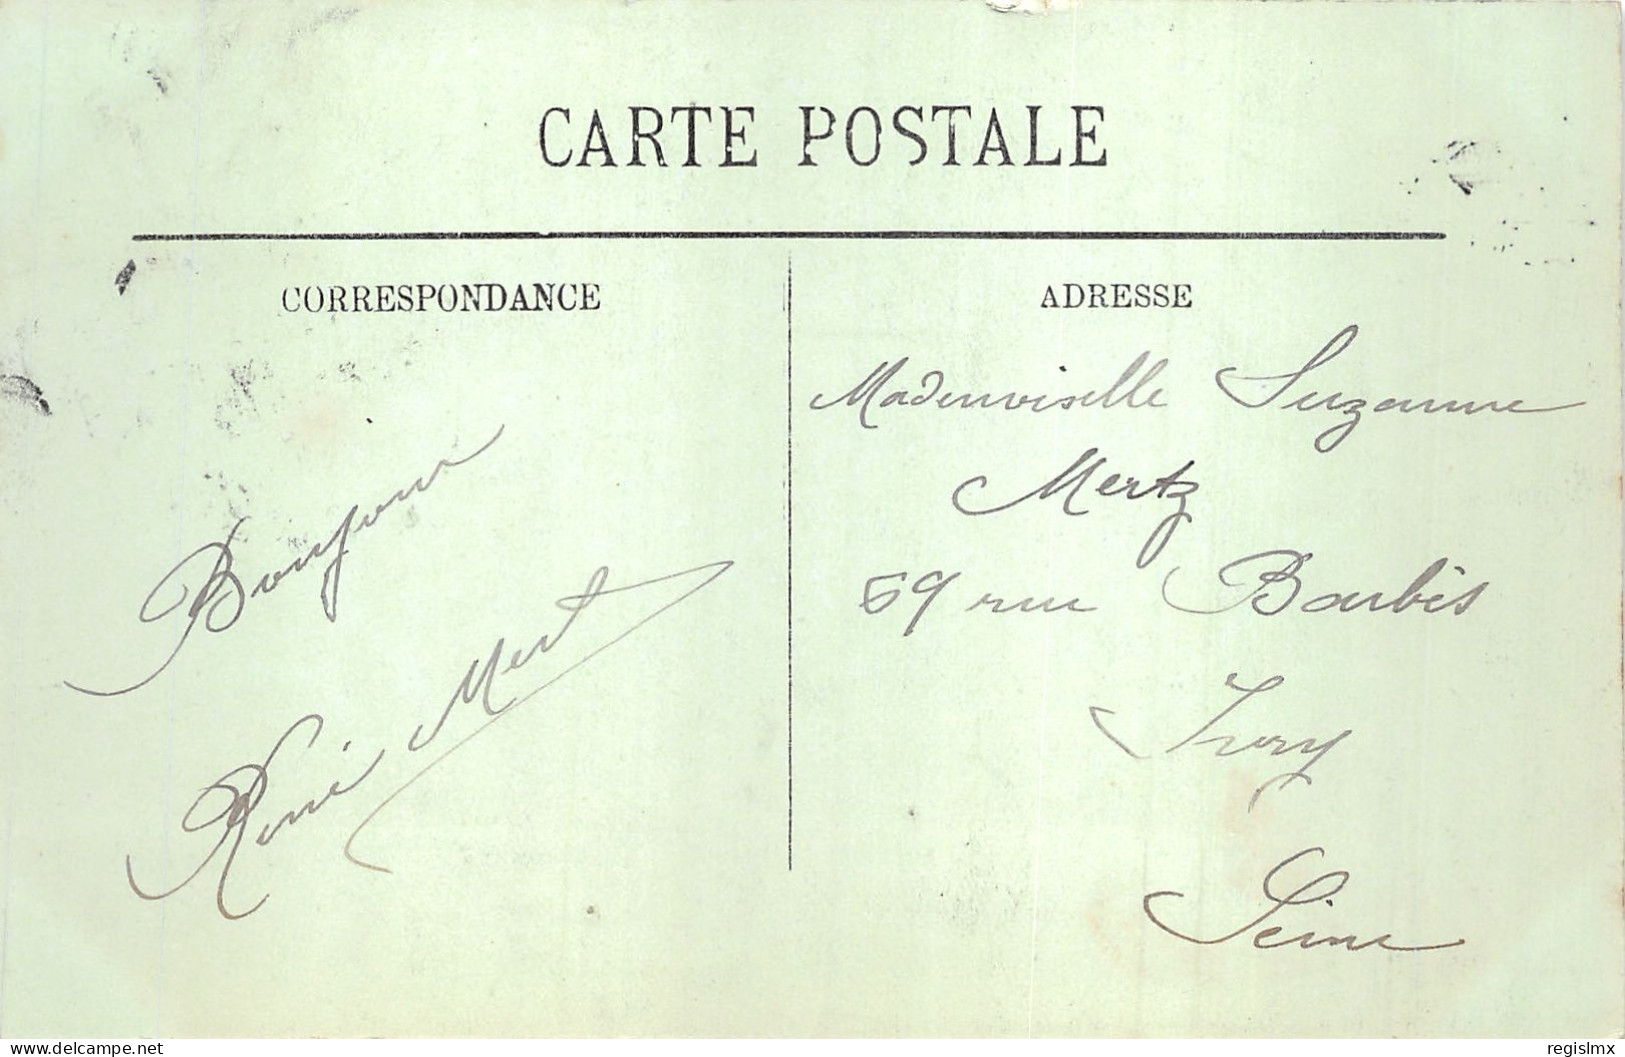 CARTE POSTALE
CORRESPONDANCE
Bonjour
René Mert
ADRESSE
Mademoiselle Suzanne
Mertz
69 rue Barbès
Ivry
Seine
delcampe.net
regislmx